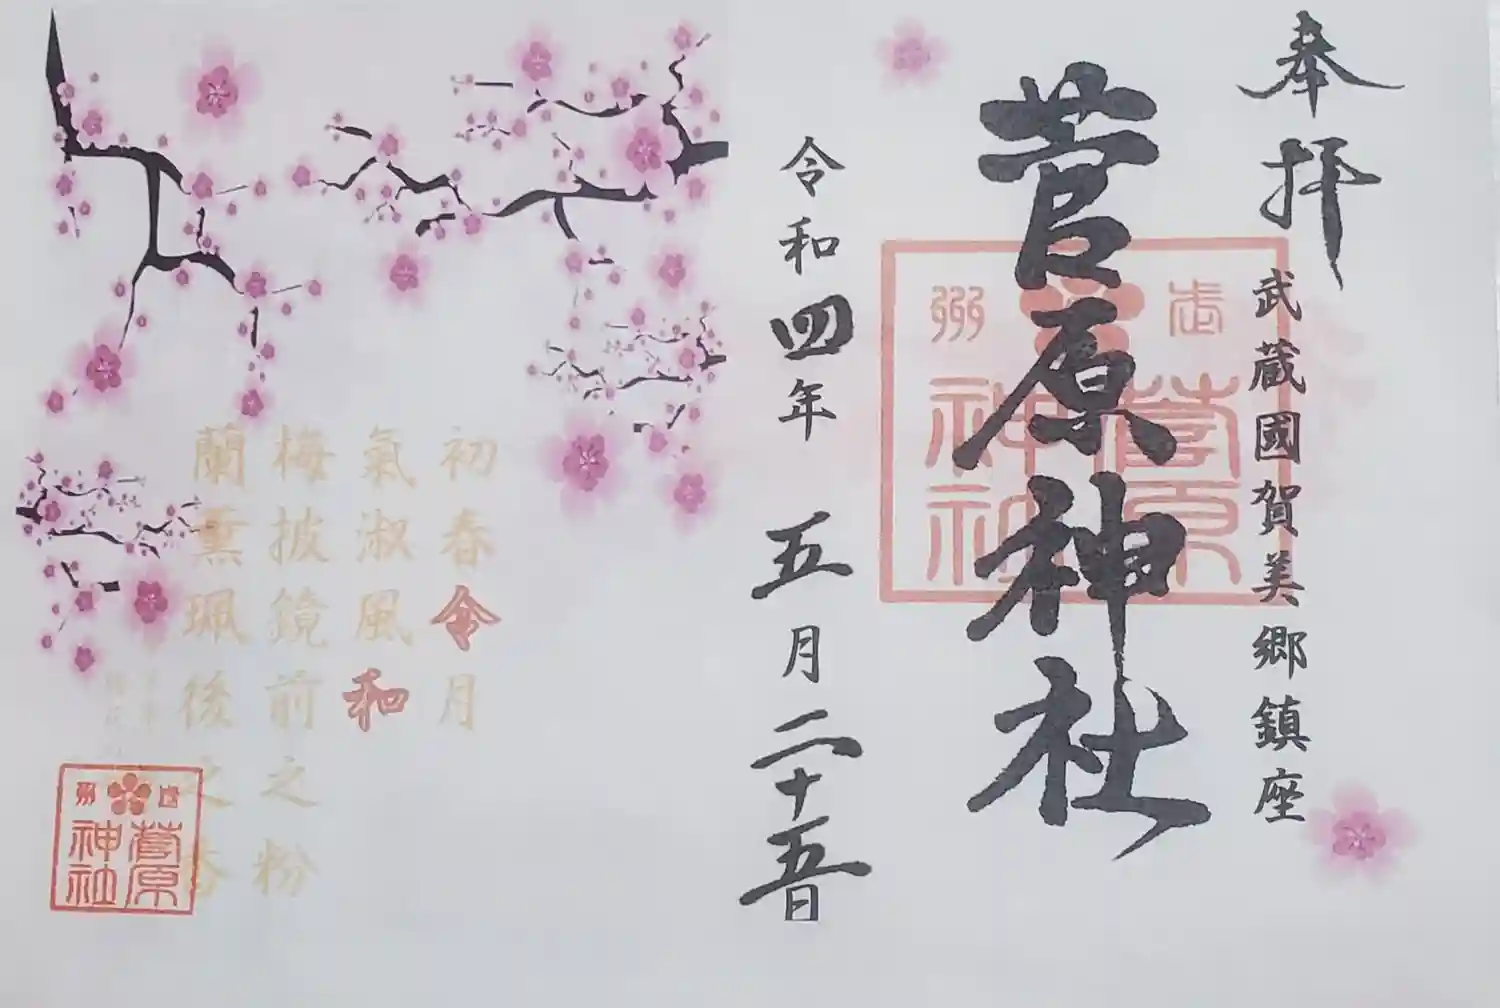 奉拝
武蔵國賀美郷鎮座
菅原神社
武州
菅原神社
令和四年 五月二十五日
初春令月
氣淑風和
梅披鏡前之粉
蘭薫珮後之香
武州
菅原神社